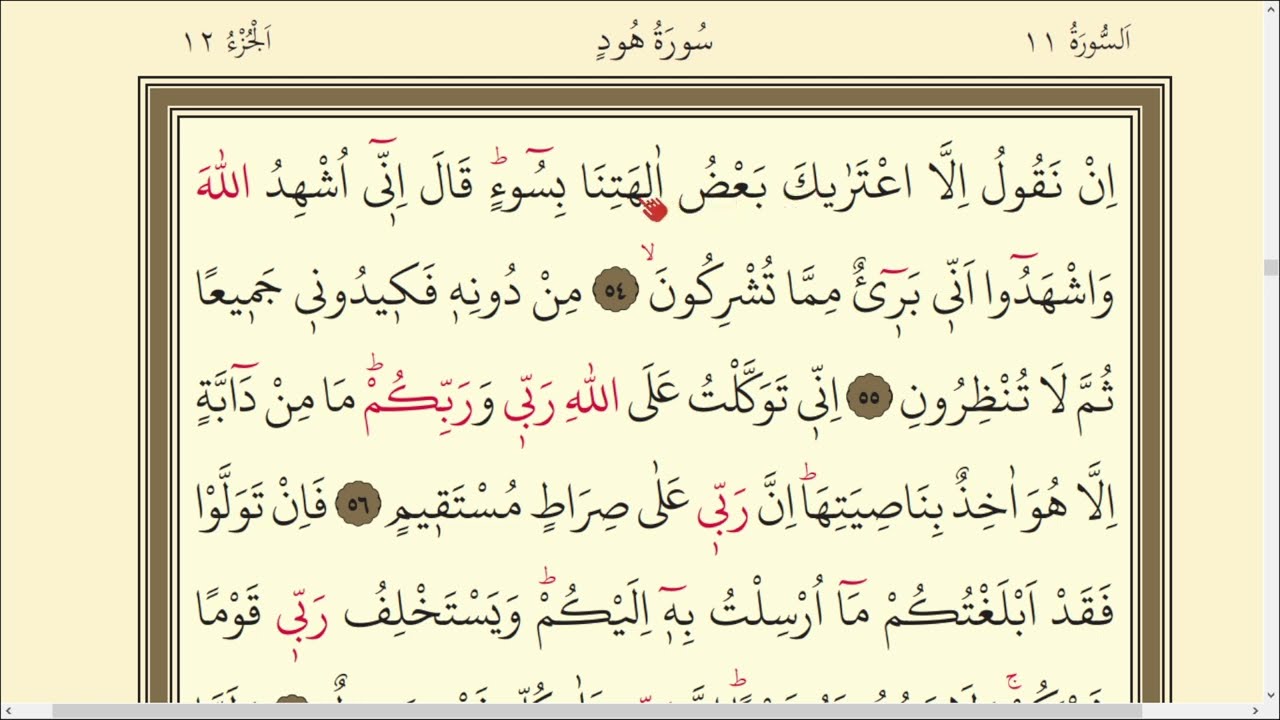 اَلسُّورَةُ ١١ سُورَةُ هُودٍ اَلْجُزْءُ ١٢
اِنْ نَقُولُ اِلَّا اعْتَرٰيكَ بَعْضُ اٰلِهَتِنَا بِسُٓوءٍۜ قَالَ اِنّ۪ٓي اُشْهِدُ اللّٰهَ
وَاشْهَدُٓوا اَنّ۪ي بَر۪ٓيءٌ مِمَّا تُشْرِكُونَۙ ٥٤ مِنْ دُونِه۪ فَك۪يدُون۪ي جَم۪يعًا
ثُمَّ لَا تُنْظِرُونِ ٥٥ اِنّ۪ي تَوَكَّلْتُ عَلَى اللّٰهِ رَبّ۪ي وَرَبِّكُمْۜ مَا مِنْ دَٓابَّةٍ
اِلَّا هُوَ اٰخِذٌ بِنَاصِيَتِهَاۜ اِنَّ رَبّ۪ي عَلٰى صِرَاطٍ مُسْتَق۪يمٍ ٥٦ فَاِنْ تَوَلَّوْا
فَقَدْ اَبْلَغْتُكُمْ مَٓا اُرْسِلْتُ بِه۪ٓ اِلَيْكُمْۜ وَيَسْتَخْلِفُ رَبّ۪ي قَوْمًا